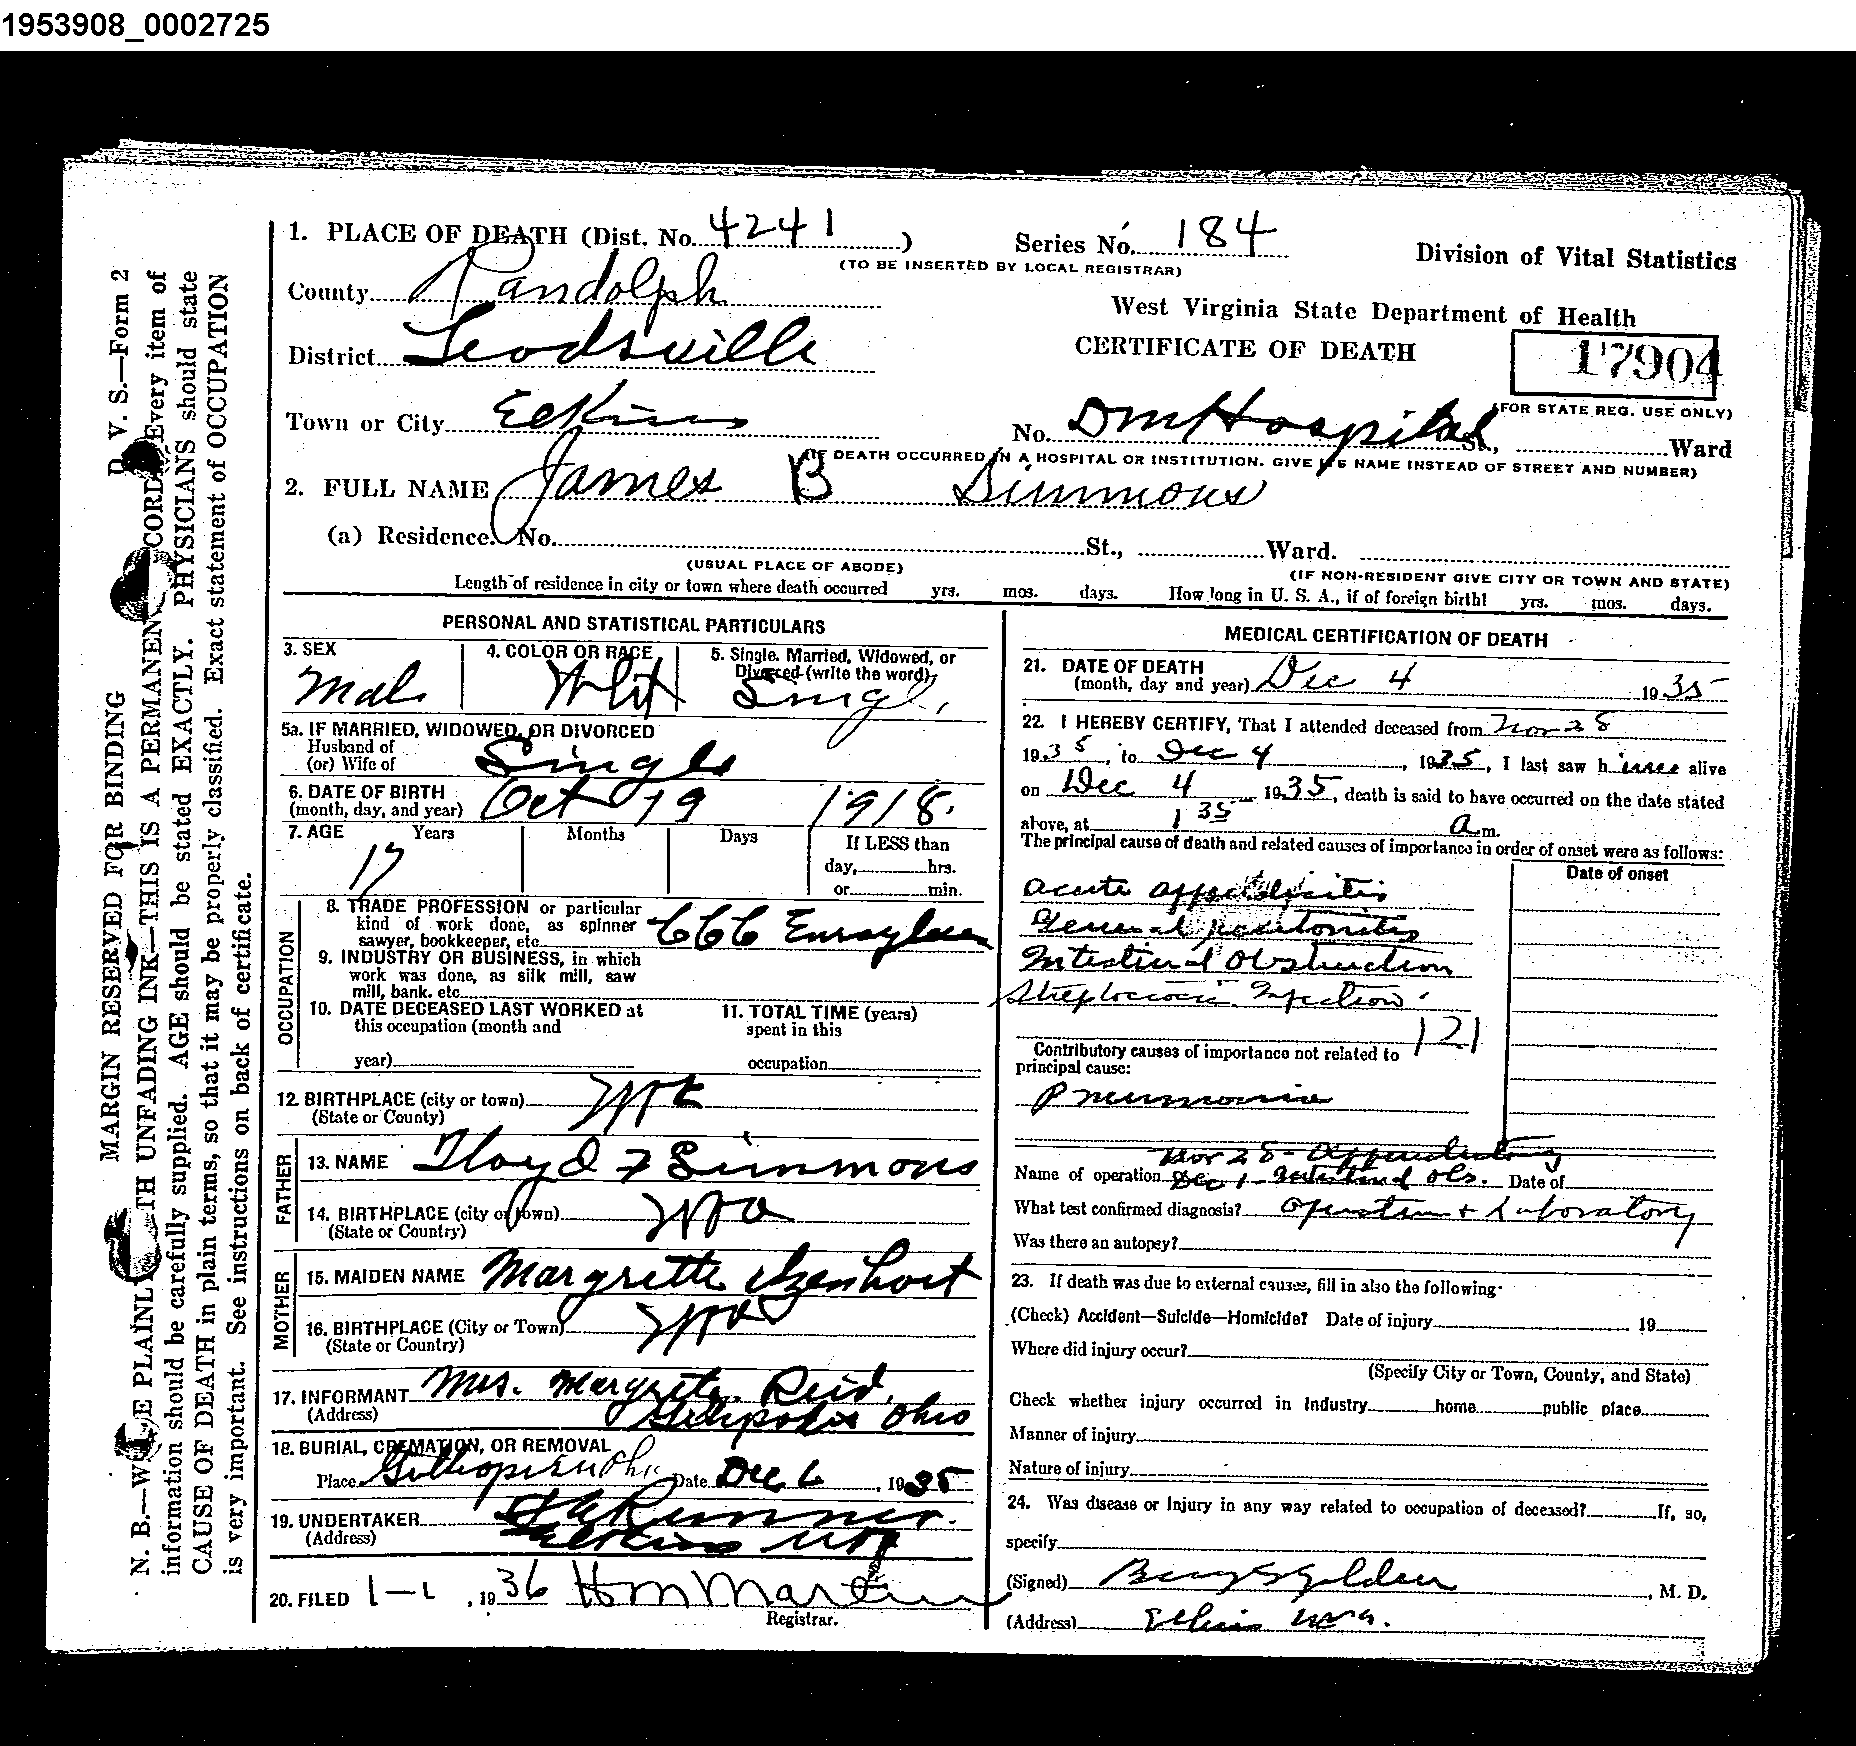 1953908_0002725
1. PLACE OF DEATH (Dist. No. 4241)
Series No. 184
Division of Vital Statistics
(TO BE INSERTED BY LOCAL REGISTRAR)
County Randolph
West Virginia State Department of Health
District Leadsville
CERTIFICATE OF DEATH
17904
(FOR STATE REG. USE ONLY)
Town or City Elkins
No. DM Hospital St., Ward
(IF DEATH OCCURRED IN A HOSPITAL OR INSTITUTION. GIVE ITS NAME INSTEAD OF STREET AND NUMBER)
2. FULL NAME James B Simmons
(a) Residence. No. St., Ward.
(USUAL PLACE OF ABODE)
(IF NON-RESIDENT GIVE CITY OR TOWN AND STATE)
Length of residence in city or town where death occurred yrs. mos. days. How long in U. S. A., if of foreign birth? yrs. mos. days.
PERSONAL AND STATISTICAL PARTICULARS
3. SEX
Male
4. COLOR OR RACE
Whit
5. Single. Married, Widowed, or
Divorced (write the word)
Single
5a. IF MARRIED, WIDOWED, OR DIVORCED
Husband of
(or) Wife of
Single
6. DATE OF BIRTH
(month, day, and year) Oct 19 1918.
7. AGE Years Months Days
17
If LESS than
day, hrs.
or min.
OCCUPATION
8. TRADE PROFESSION or particular
kind of work done, as spinner
sawyer, bookkeeper, etc. CCC
9. INDUSTRY OR BUSINESS, in which
work was done, as silk mill, saw
mill, bank. etc.
10. DATE DECEASED LAST WORKED at
this occupation (month and
year)
11. TOTAL TIME (years)
spent in this
occupation
12. BIRTHPLACE (city or town)
(State or County)
FATHER
13. NAME Floyd F Simmons
14. BIRTHPLACE (city or town) W Va
(State or Country)
MOTHER
15. MAIDEN NAME Margrette
16. BIRTHPLACE (City or Town) W Va
(State or Country)
17. INFORMANT Mrs. Margrette Reid,
(Address) Ohio
18. BURIAL, CREMATION, OR REMOVAL
Place Date Dec 6, 1935
19. UNDERTAKER Runner.
(Address) Elkins W Va
20. FILED 1-2, 1936 H M Martin
Registrar.
MEDICAL CERTIFICATION OF DEATH
21. DATE OF DEATH
(month, day and year) Dec 4 1935
22. I HEREBY CERTIFY, That I attended deceased from Nov 28
1935, to Dec 4, 1935, I last saw him alive
on Dec 4 1935, death is said to have occurred on the date stated
above, at 1 35 a m.
The principal cause of death and related causes of importance in order of onset were as follows:
Date of onset
Acute appendicitis
General peritonitis
Intestinal Obstruction
Streptococci Infection.
121
Contributory causes of importance not related to
principal cause:
Pneumonia
Nov 28 - Appendectomy
Name of operation Dec 1 - Intestinal Obs. Date of
What test confirmed diagnosis? Operation + Laboratory
Was there an autopsy?
23. If death was due to external causes, fill in also the following:
(Check) Accident—Suicide—Homicide? Date of injury 19
Where did injury occur?
(Specify City or Town, County, and State)
Check whether injury occurred in Industry home public place
Manner of injury
Nature of injury
24. Was disease or Injury in any way related to occupation of deceased? If, so,
specify
(Signed) Golden, M. D.
(Address) Elkins W Va.
D. V. S.—Form 2
MARGIN RESERVED FOR BINDING
N. B.—WRITE PLAINLY WITH UNFADING INK—THIS IS A PERMANENT RECORD. Every item of
information should be carefully supplied. AGE should be stated EXACTLY. PHYSICIANS should state
CAUSE OF DEATH in plain terms, so that it may be properly classified. Exact statement of OCCUPATION
is very important. See instructions on back of certificate.